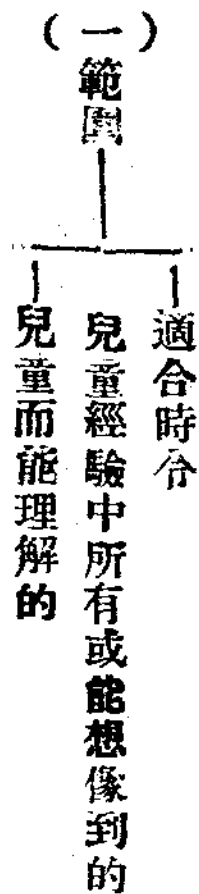 （一）範圍
適合時令
兒童經驗中所有或能想像到的
兒童而能理解的